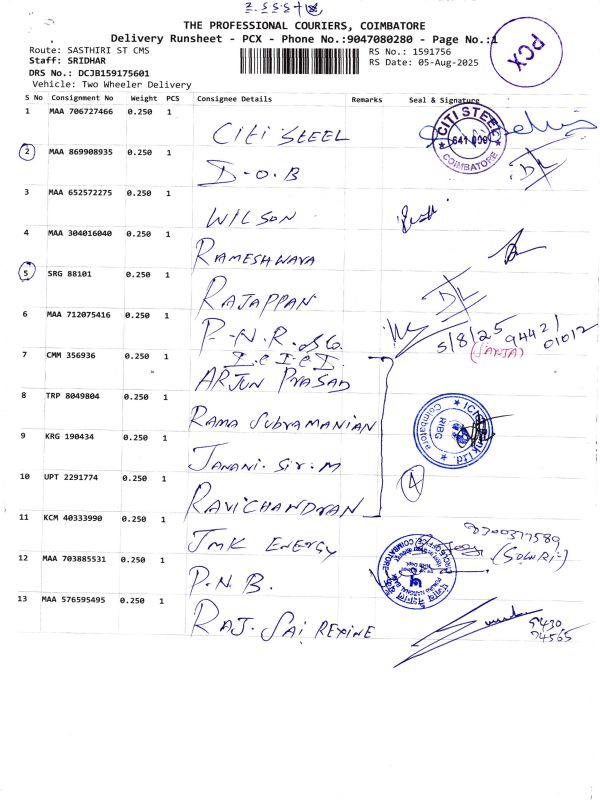 THE PROFESSIONAL COURIERS, COIMBATORE
Delivery Runsheet - PCX - Phone No.:9047080280 - Page No.:1
PCX
Route: SASTHIRI ST CMS
RS No.: 1591756
Staff: SRIDHAR
RS Date: 05-Aug-2025
DRS No.: DCJB159175601
Vehicle: Two Wheeler Delivery
S No Consignment No Weight PCS Consignee Details Remarks Seal & Signature
1 MAA 706727466 0.250 1 CITI STEEL
CITI STEEL 641 009 COIMBATORE
2 MAA 869908935 0.250 1 I-O-B
3 MAA 652572275 0.250 1 WILSON
4 MAA 304016040 0.250 1 RAMESHWARA
5 SRG 88101 0.250 1 RAJAPPAN
DL
6 MAA 712075416 0.250 1 P-N.R.
5/8/25 94421 01012
7 CMM 356936 0.250 1 I.C.I.C.I.
ARJUN PRASAD
8 TRP 8049804 0.250 1 RAMA SUBRAMANIAN
Coimbatore RIBG Ltd.
9 KRG 190434 0.250 1 JANANI. SIR. M
10 UPT 2291774 0.250 1 RAVICHANDRAN
4
11 KCM 40333990 0.250 1 JMK ENERGY
12 MAA 703885531 0.250 1 P.N.B.
13 MAA 576595495 0.250 1 RAJ. SAI REXINE
9430
74565